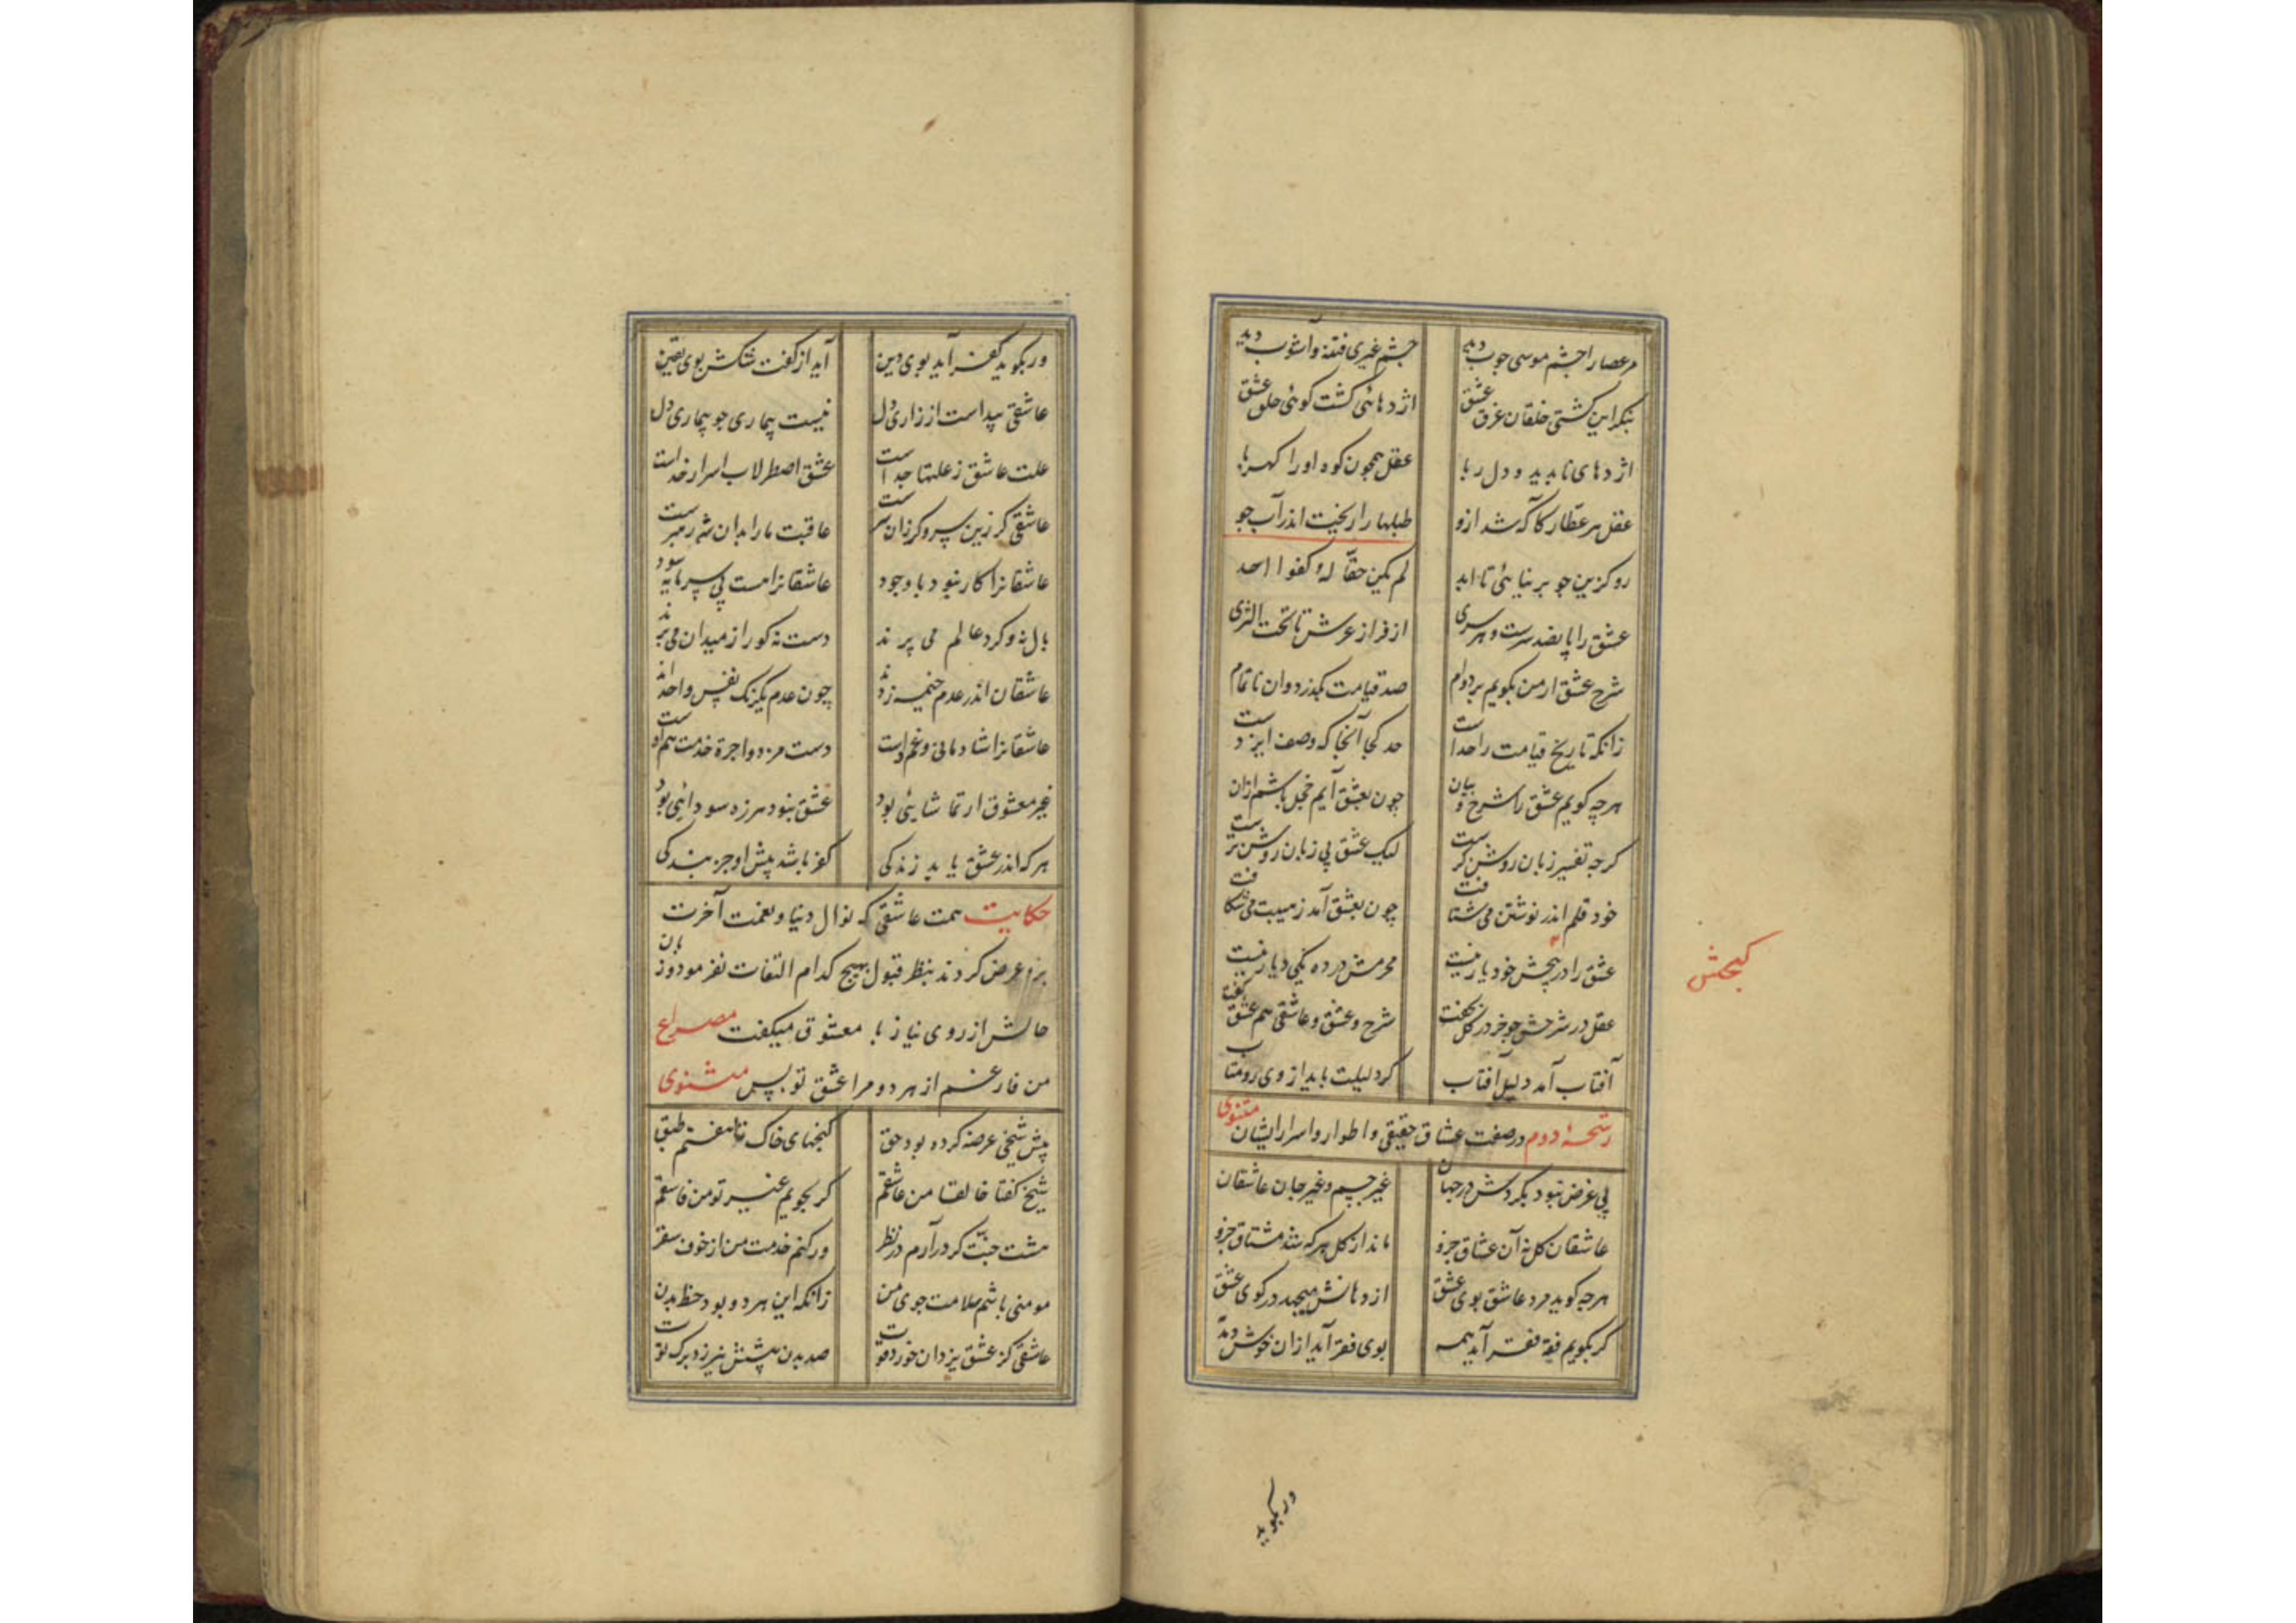 مر عصا را چشم موسی چوب دید چشم غیری فتنه و آشوب دید
بنگر این کشتی خلقان غرق عشق اژدهائی گشت گوئی حلق عشق
اژدهای ناپدید و دل ربا عقل همچون کوه او را کهربا
عقل هر عطار کآگه شد ازو طبلها را ریخت اندر آب جو
رو کزین جو بر نیائی تا ابد لم یکن حقا له کفوا احد
عشق را پانصد پرست و هر پری از فراز عرش تا تحت الثری
شرح عشق ار من بگویم بر دوام صد قیامت بگذرد وان ناتمام
زانکه تاریخ قیامت را حد است حد کجا آنجا که وصف ایزدست
هرچه گویم عشق را شرح و بیان چون بعشق آیم خجل باشم ازان
گرچه تفسیر زبان روشن گرست لیک عشق بی زبان روشن ترست
خود قلم اندر نوشتن می شتافت چون بعشق آمد ز هیبت می شکافت
عشق را در پیچش خود یار نیست محرمش در ده یکی دیار نیست
گنجش
عقل در شرحش چو خر در گل بخفت شرح و عشق و عاشقی هم عشق گفت
آفتاب آمد دلیل آفتاب گر دلیلت باید از وی رو متاب
رشحهٔ دوم در صفت عشاق حقیقی و اطوار و اسرار ایشان مثنوی
بی غرض نبود بگردش در جهان غیر جسم و غیر جان عاشقان
عاشقان کل نه آن عشاق جزو ماند از کل هر که شد مشتاق جزو
هرچه گوید مرد عاشق بوی عشق از دهانش میجهد در کوی عشق
گر بگویم فقه فقر آید همه بوی فقر آید ازان خوش دمدمه
وربگوید
ور بگوید کفر آید بوی دین آید از گفت شکش بوی یقین
عاشقی پیداست از زاری دل نیست بیماری چو بیماری دل
علت عاشق ز علتها جداست عشق اصطرلاب اسرار خداست
عاشقی گر زین سر و گر زان سرست عاقبت ما را بدان شه رهبرست
عاشقانرا کار نبود با وجود عاشقانرا هست بی سرمایه سود
بال نه و گرد عالم می پرند دست نه گو از میدان می برند
عاشقان اندر عدم خیمه زدند چون عدم یکرنگ نفس واحدند
عاشقانرا شادمانی و غم اوست دست مزد و اجرة خدمت هم اوست
غیر معشوق ار تماشائی بود عشق نبود هرزه سودائی بود
هر که اندر عشق یابد زندگی کفر باشد پیش او جز بندگی
حکایت همت عاشقی که نوال دنیا و نعمت آخرت
برو عرض کردند بنظر قبول بهیچ کدام التفات نفرمود و زبان
حالش از روی نیاز با معشوق میگفت مصراع
من فارغم از هر دو مرا عشق تو بس مثنوی
پیش شیخی عرضه کرده بود حق گنجهای خاک تا هفتم طبق
شیخ گفتا خالقا من عاشقم گر بجویم غیر تو من فاسقم
هشت جنت گر درآرم در نظر ور کنم خدمت من از خوف سقر
مومنی باشم سلامت جوی من زانکه این هر دو بود حظ بدن
عاشقی کز عشق یزدان خورد قوت صد بدن پیشش نیرزد برگ توت